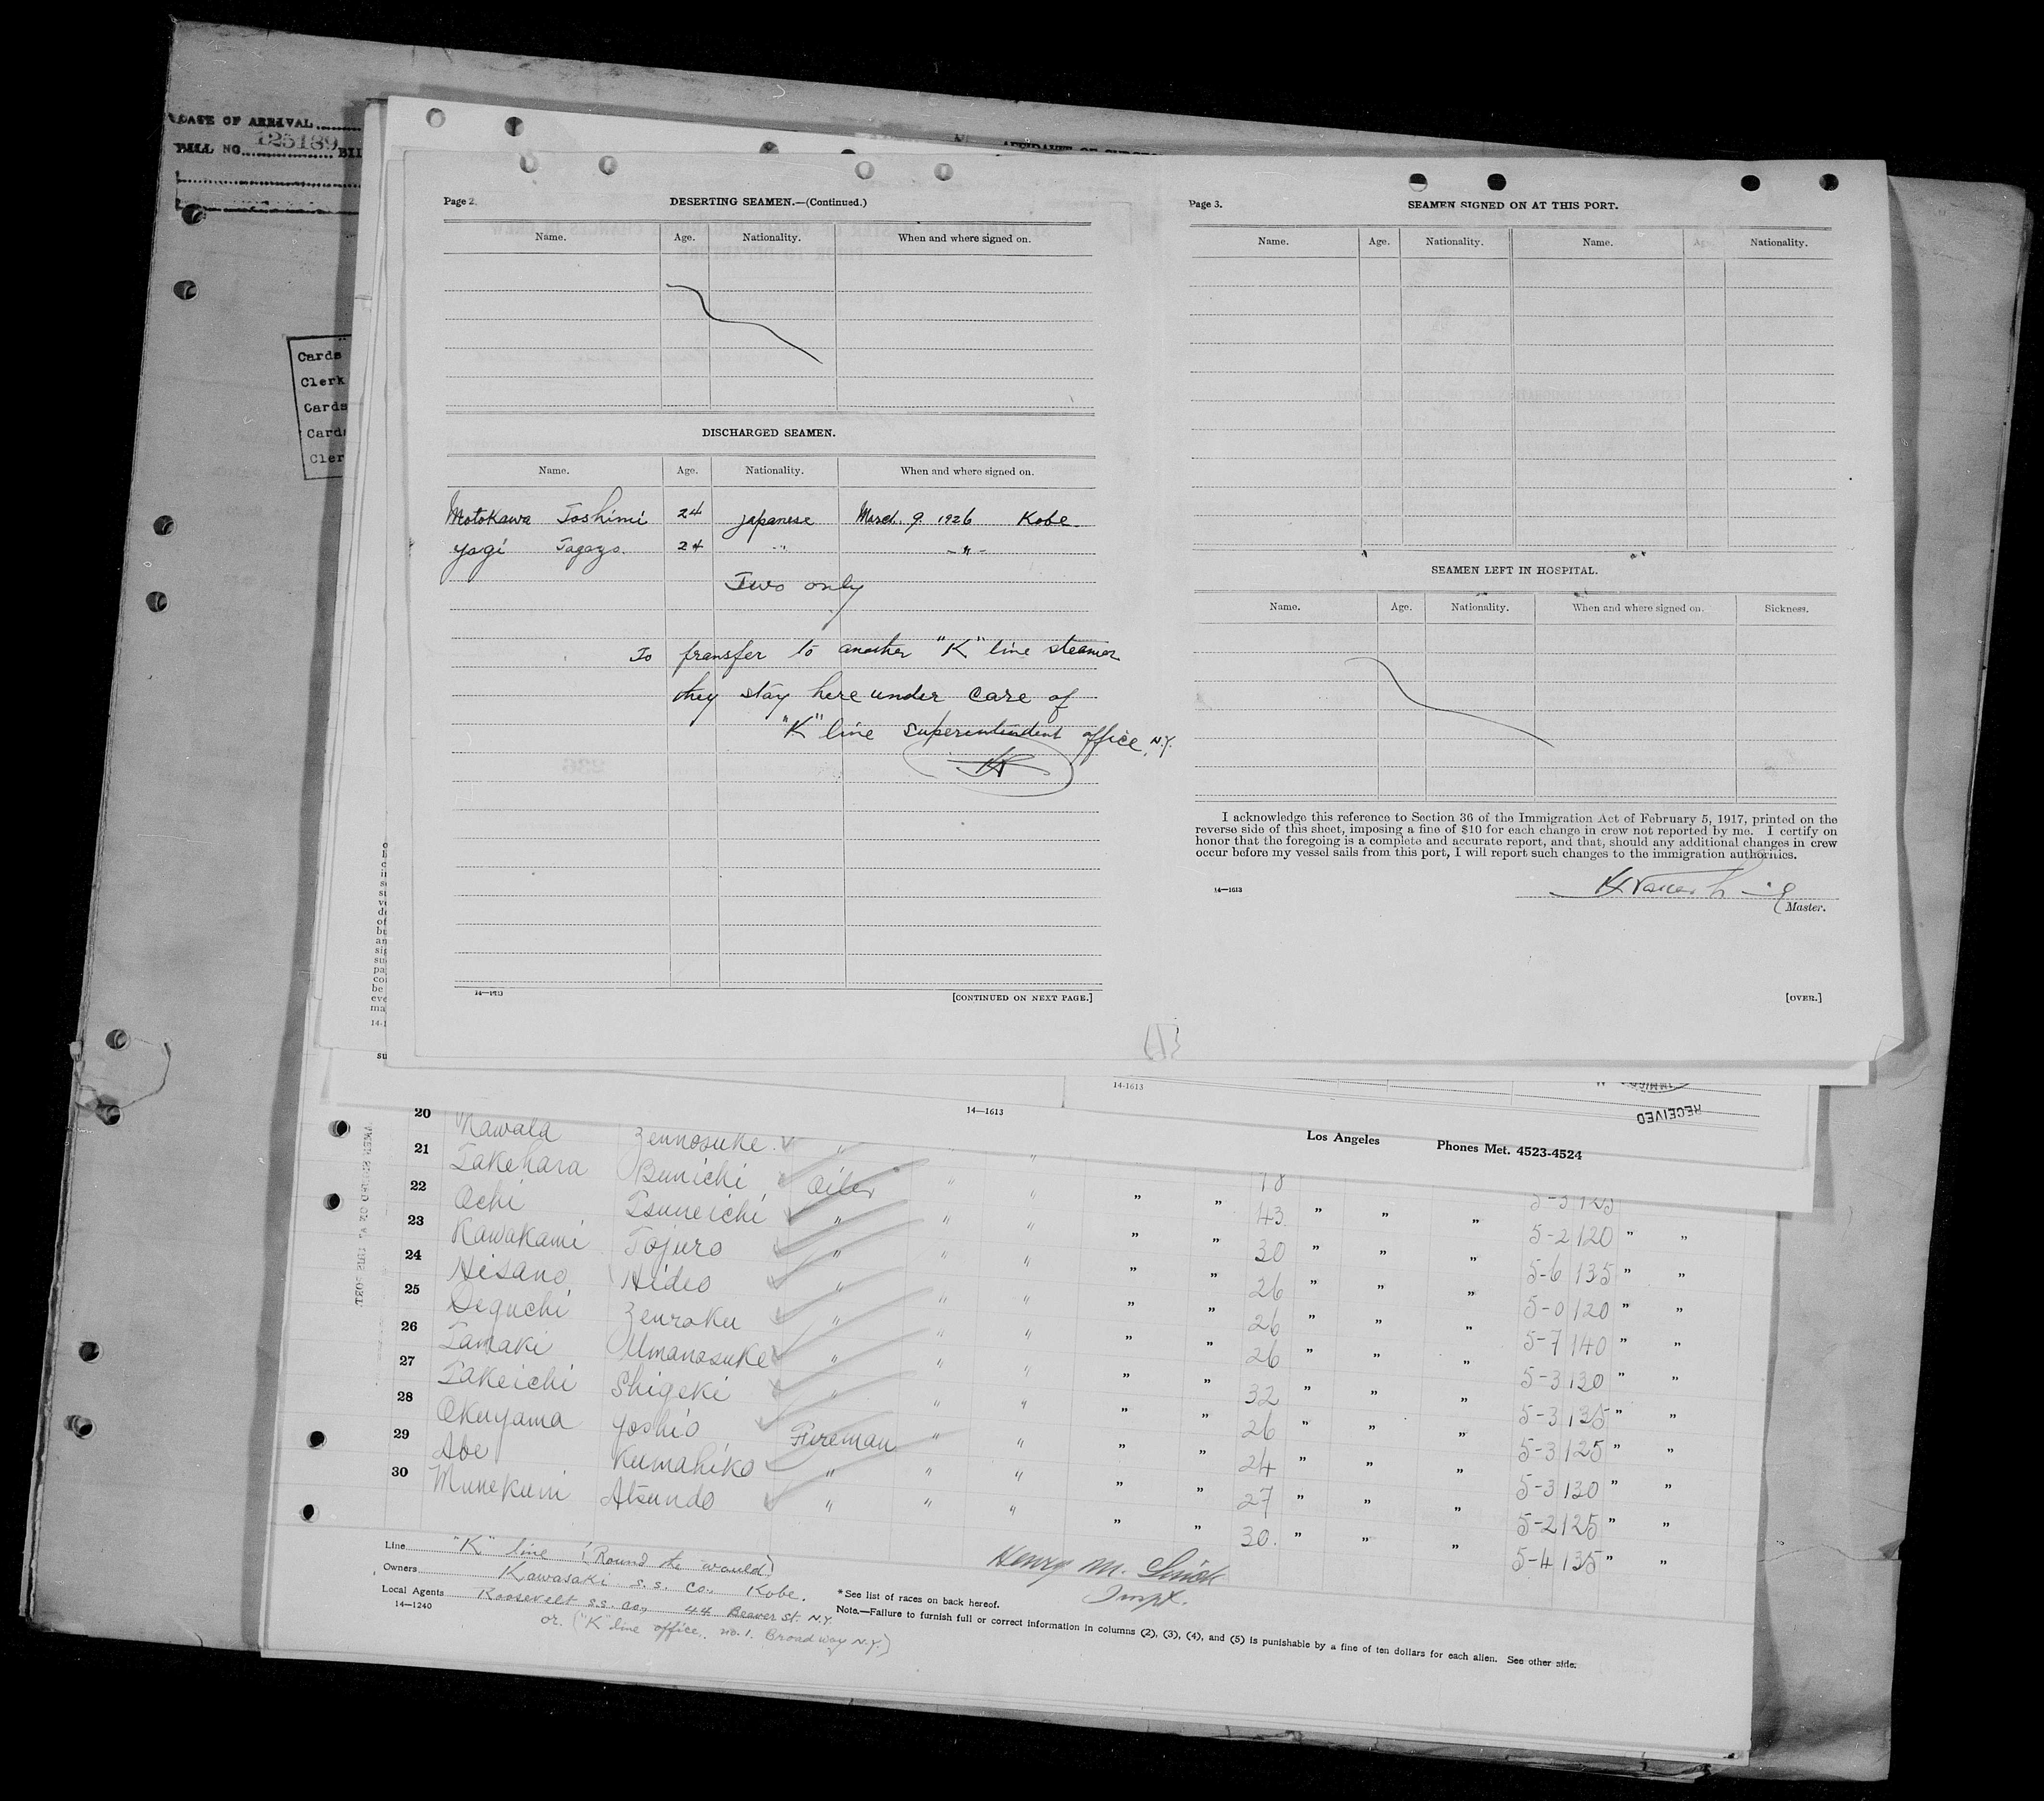 DATE OF ARRIVAL
BILL NO. 125189 BIL
Cards
Clerk
Cards
Card
Cler
Page 2.
DESERTING SEAMEN.—(Continued.)
Name. Age. Nationality. When and where signed on.
DISCHARGED SEAMEN.
Name. Age. Nationality. When and where signed on.
Motokawa Toshimi 24 japanese March. 9. 1926 Kobe
Yagi Tagazo. 24 " -"-
Two only
To transfer to another "K" line steamer
they stay here under care of
"K" line superintendent office, N.Y.
14—1613
[CONTINUED ON NEXT PAGE.]
Page 3.
SEAMEN SIGNED ON AT THIS PORT.
Name. Age. Nationality. Name. Age. Nationality.
SEAMEN LEFT IN HOSPITAL.
Name. Age. Nationality. When and where signed on. Sickness.
I acknowledge this reference to Section 36 of the Immigration Act of February 5, 1917, printed on the
reverse side of this sheet, imposing a fine of $10 for each change in crew not reported by me. I certify on
honor that the foregoing is a complete and accurate report, and that, should any additional changes in crew
occur before my vessel sails from this port, I will report such changes to the immigration authorities.
14—1613
Master.
[OVER.]
14-1613
RECEIVED
14—1613
Los Angeles Phones Met. 4523-4524
20 Zennosuke " "
21 Takehara Bunichi Oiler " " " " 18 5-3 125
22 Ochi Tsuneichi " " " " " 43 " " " 5-2 120 " "
23 Kawakami Tojuro " " " " " 30 " " " 5-6 135 " "
24 Hisano Hideo " " " " " 26 " " " 5-0 120 " "
25 Deguchi Zenroku " " " " " 26 " " " 5-7 140 " "
26 Tamaki Umanosuke " " " " " 26 " " " 5-3 130 " "
27 Takeichi Shigeki " " " " " 32 " " " 5-3 135 " "
28 Okuyama Yoshio Fireman " " " " 26 " " " 5-3 125 " "
29 Abe Kumahiko " " " " " 24 " " " 5-3 130 " "
30 Munekuni Atsundo " " " " " 27 " " " 5-2 125 " "
30. " " " 5-4 135 " "
Line "K" line (Round the would)
Owners Kawasaki s.s. Co., Kobe.
Local Agents Roosevelt s.s. co, 44 Beaver St. N.Y.
14—1240
or. ("K" line office,. no. 1. Broadway N.Y.)
Henry M.
Inspt.
*See list of races on back hereof.
Note.—Failure to furnish full or correct information in columns (2), (3), (4), and (5) is punishable by a fine of ten dollars for each alien. See other side.